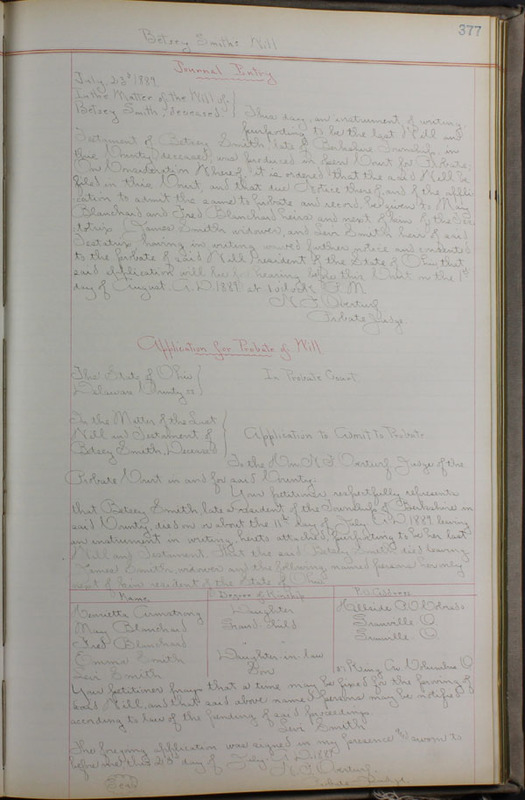 377
Betsey Smith's Will
Journal Entry
July 23d 1889
In the Matter of the Will of
Betsey Smith, deceased
This day, an instrument of writing
purporting to be the last Will and
Testament of Betsey Smith late of Berkshire Township in
this County deceased, was produced in open Court for Probate;
On Consideration Whereof, it is ordered that the said Will be
filed in this Court, and that due Notice thereof, and of the appli
cation to admit the same to probate and record, be given to May
Blanchard and Fred Blanchard heirs and next of kin of the Tes
tatrix, James Smith widower, and Levi Smith heir of said
Testatrix having in writing waived further notice and consented
to the probate of said Will resident of the State of Ohio, that
said application will be for hearing before this Court on the 1st
day of August A.D. 1889 at o'clock A.M.
Probate Judge
Application for Probate of Will
The State of Ohio
Delaware County ss
In Probate Court
In the Matter of the Last
Will and Testament of
Betsey Smith, Deceased
Application to Admit to Probate
To the Hon. Judge of the
Probate Court in and for said County:
Your petitioner respectfully represents
that Betsey Smith late a resident of the Township of Berkshire in
said County, died on or about the 11th day of July A.D. 1889 leaving
an instrument in writing, hereto attached, purporting to be her last
Will and Testament. That the said Betsey Smith died leaving
James Smith, widower and the following named persons her only
next of kin resident of the State of Ohio
Name
Degree of Kinship
P.O. Address
Henrietta Armstrong
Daughter
May Blanchard
Grand Child
Granville O.
Fred Blanchard
"
Granville O.
Emma Smith
Daughter-in-law
Levi Smith
Son
Columbus O
Your petitioner prays that a time may be fixed for the proving of
said Will, and that said above named persons may be notified
according to law of the pending of said proceedings
Levi Smith
The foregoing application was signed in my presence and sworn to
before me this 23d day of July A.D. 1889
Seal
Probate Judge